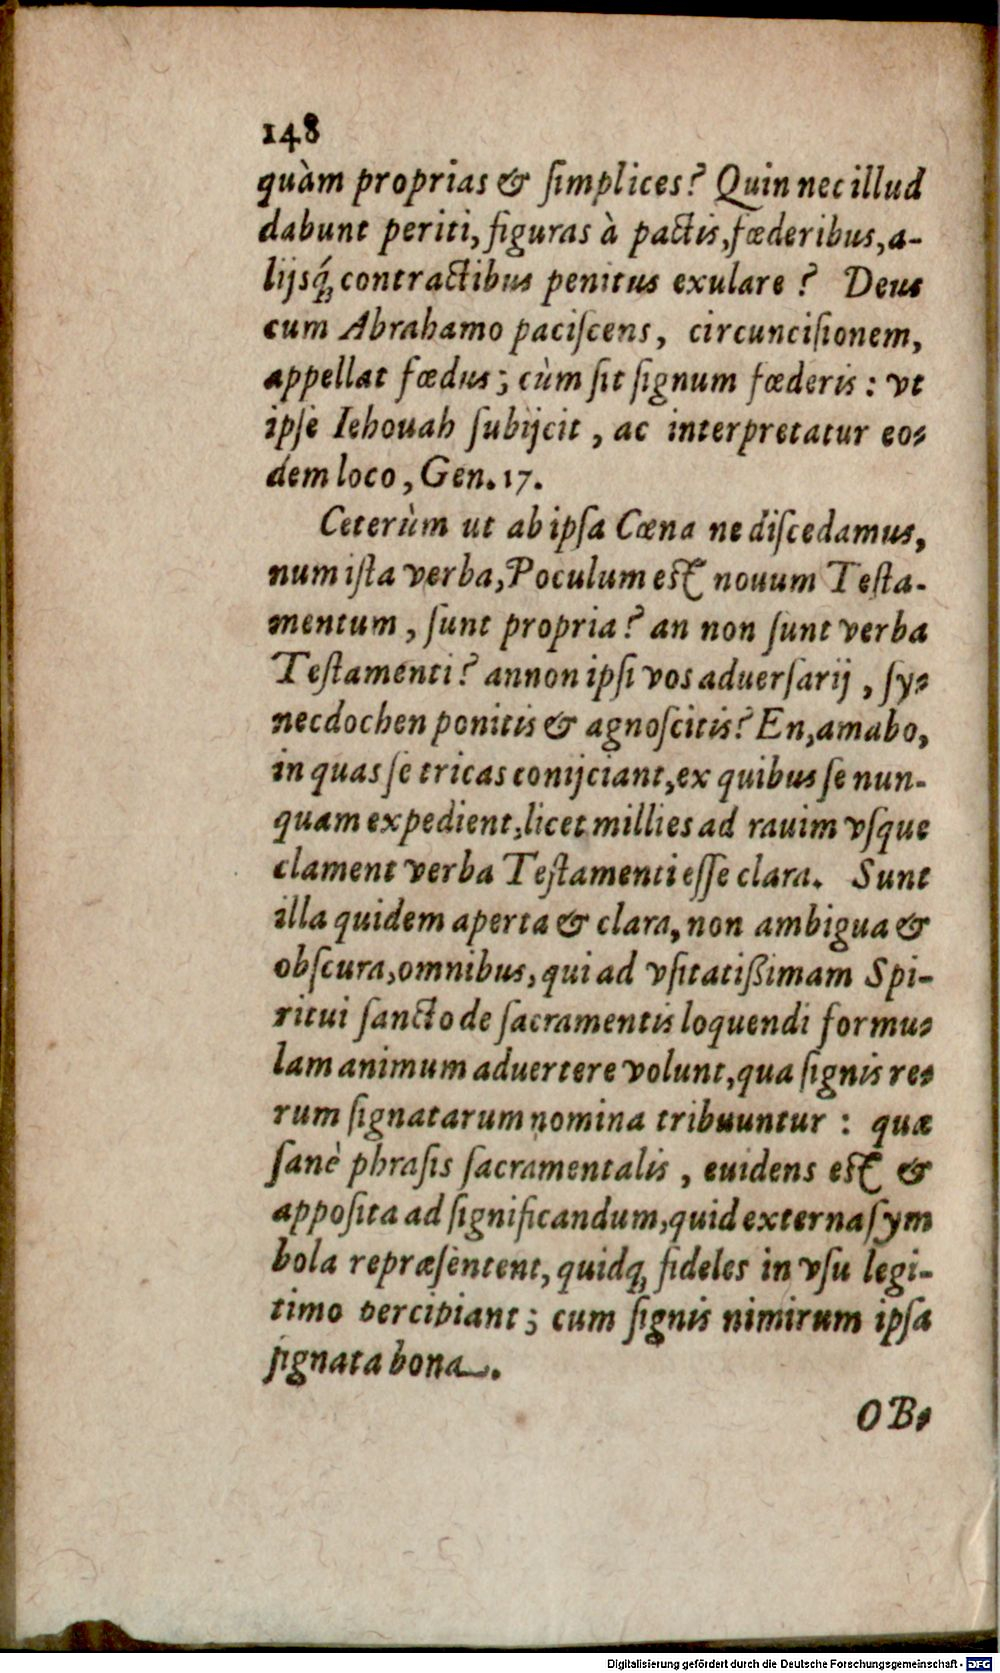 148
quàm proprias & ſimplices? Quin nec illud
dabunt periti, figuras à pactis, fœderibus, a-
lijsq́; contractibus penitus exulare? Deus
cum Abrahamo paciſcens, circunciſionem,
appellat fœdus; cùm ſit ſignum fœderis: vt
ipſe Iehouah ſubijcit, ac interpretatur eo-
dem loco, Gen. 17.
Ceterùm ut ab ipſa Cœna ne diſcedamus,
num iſta verba, Poculum eſt nouum Teſta-
mentum, ſunt propria? an non ſunt verba
Teſtamenti? annon ipſi vos aduerſarij, ſy-
necdochen ponitis & agnoſcitis? En, amabo,
in quas ſe tricas conijciant, ex quibus ſe nun-
quam expedient, licet millies ad rauim vſque
clament verba Teſtamenti eſſe clara. Sunt
illa quidem aperta & clara, non ambigua &
obſcura, omnibus, qui ad vſitatißimam Spi-
ritui ſancto de ſacramentis loquendi formu-
lam animum aduertere volunt, qua ſignis re-
rum ſignatarum nomina tribuuntur: quæ
ſanè phraſis ſacramentalis, euidens eſt &
appoſita ad ſignificandum, quid externa ſym
bola repræſentent, quidq; fideles in vſu legi-
timo percipiant; cum ſignis nimirum ipſa
ſignata bona.
OB-
Digitalisierung gefördert durch die Deutsche Forschungsgemeinschaft - DFG